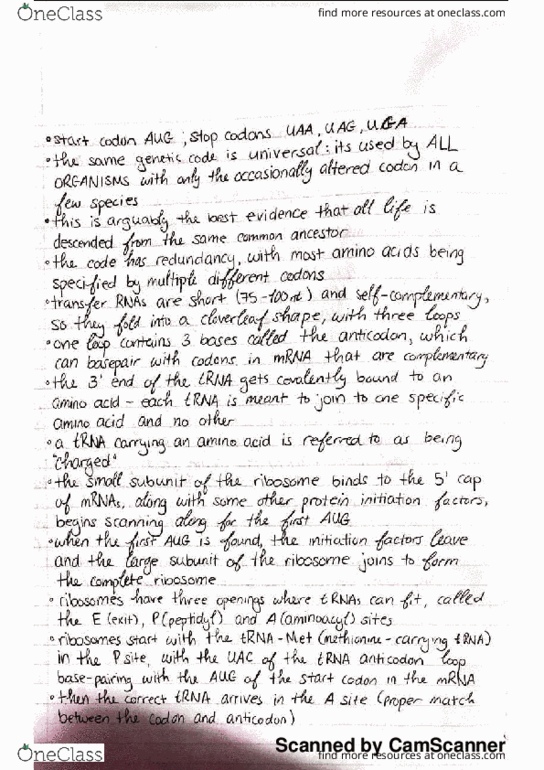 OneClass
find more resources at oneclass.com
• start codon AUG ; stop codons UAA, UAG, UGA
• the same genetic code is universal: its used by ALL
ORGANISMS with only the occasionally altered codon in a
few species
• this is arguably the best evidence that all life is
descended from the same common ancestor
• the code has redundancy, with most amino acids being
specified by multiple different codons
• transfer RNAs are short (75-100nt) and self-complementary,
so they fold into a cloverleaf shape, with three loops
• one loop contains 3 bases called the anticodon, which
can basepair with codons in mRNA that are complementary
• the 3' end of the tRNA gets covalently bound to an
amino acid - each tRNA is meant to join to one specific
amino acid and no other
• a tRNA carrying an amino acid is referred to as being
"charged"
• the small subunit of the ribosome binds to the 5' cap
of mRNAs, along with some other protein initiation factors,
begins scanning along for the first AUG
• when the first AUG is found, the initiation factors leave
and the large subunit of the ribosome joins to form
the complete ribosome
• ribosomes have three openings where tRNAs can fit, called
the E (exit), P (peptidyl) and A (aminoacyl) sites
• ribosomes start with the tRNA-Met (methionine-carrying tRNA)
in the P site, with the UAC of the tRNA anticodon loop
base-pairing with the AUG of the start codon in the mRNA
• then the correct tRNA arrives in the A site (proper match
between the codon and anticodon)
Scanned by CamScanner
OneClass
find more resources at oneclass.com